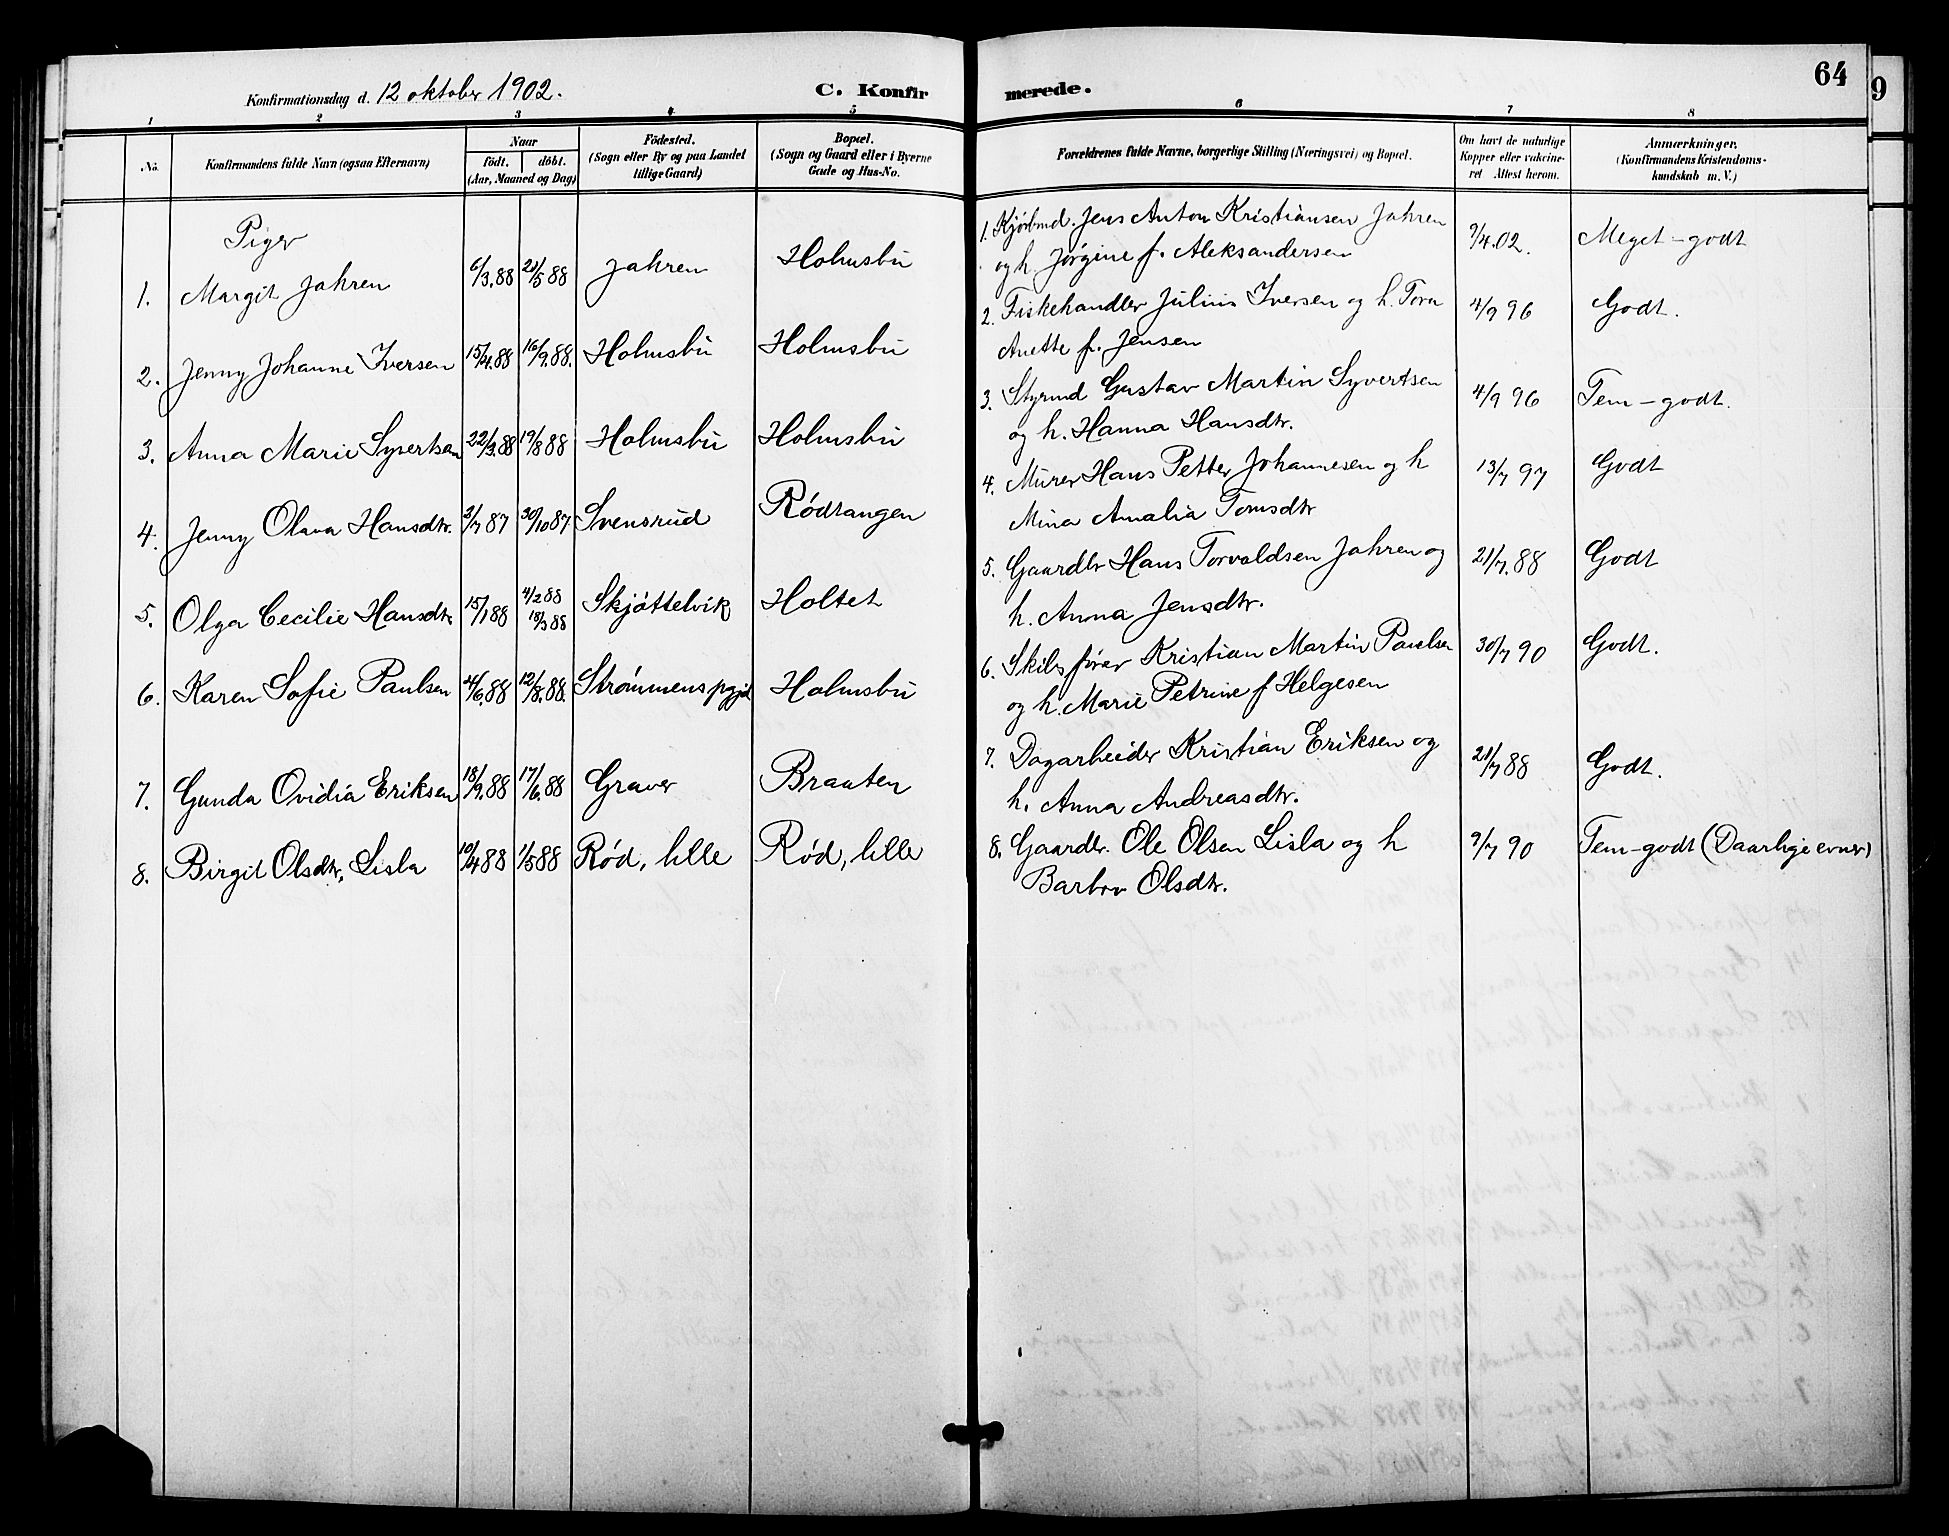 Konfirmationsdag d. 12 oktober 1902.
C. Konfir
merede.
64
9
1 2 3 4 5 6 7 8
No.
Konfirmandens fulde Navn (ogsaa Efternavn)
Naar
født. døbt.
(Aar, Maaned og Dag)
Fødested.
(Sogn eller By og paa Landet
tillige Gaard)
Bopæl.
(Sogn og Gaard eller i Byerne
Gade og Hus-No.
Forældrenes fulde Navne, borgerlige Stilling (Næringsvei) og Bopæl.
Om havt de naturlige
Kopper eller vakcine-
ret Attest herom.
Anmærkninger.
(Konfirmandens Kristendoms-
kundskab m. V.)
Piger
1. Margit Jahren 6/3.88 21/5 88 Jahren Holmsbu
1. Kjøbmd. Jens Anton Kristiansen Jahren
og h. Jørgine f. Aleksandersen
9/4.02. Meget-godt
2. Jenny Johanne Iversen 15/4.88 16/9.88. Holmsbu Holmsbu
2. Fiskehandler Julius Iversen og h. Tora
Anette f. Jensen
4/9 96 Godt.
3. Anna Marie Syvertsen 22/3.88 19/8 88 Holmsbu Holmsbu
3. Styrmd Gustav Martin Syvertsen
og h. Hanna Hansdtr.
4/9 96 Tem-godt.
4. Jenny Olava Hansdtr. 3/7 87 30/10 87 Svensrud Rødtangen
4. Murer Hans Petter Johannesen og h
Mina Amalia Tomsdtr
13/7 97 Godt
5. Olga Cecilie Hansdtr 15/1 88 4/2 88
18/3 88
Skjøttelvik Holtet
5. Gaardbr Hans Torvaldsen Jahren og
h. Anna Jensdtr.
21/7.88 Godt
6. Karen Sofie Paulsen 4/6.88 12/8.88. Strømmens pgjd Holmsbu
6. Skibsfører Kristian Martin Paulsen
og h. Marie Petrine f Helgesen
30/7 90 Godt.
7. Gunda Ovidia Eriksen 18/9.88 17/6.88 Graver Braaten
7. Dagarbeider Kristian Eriksen og
h. Anna Andreasdtr.
21/7 88 Godt.
8. Birgit Olsdtr, Lisla 10/4 88 1/5 88 Rød, lille Rød, lille
8. Gaardbr. Ole Olsen Lisla og h
Barbro Olsdtr.
9/7 90 Tem-godt (Daarlige evner)